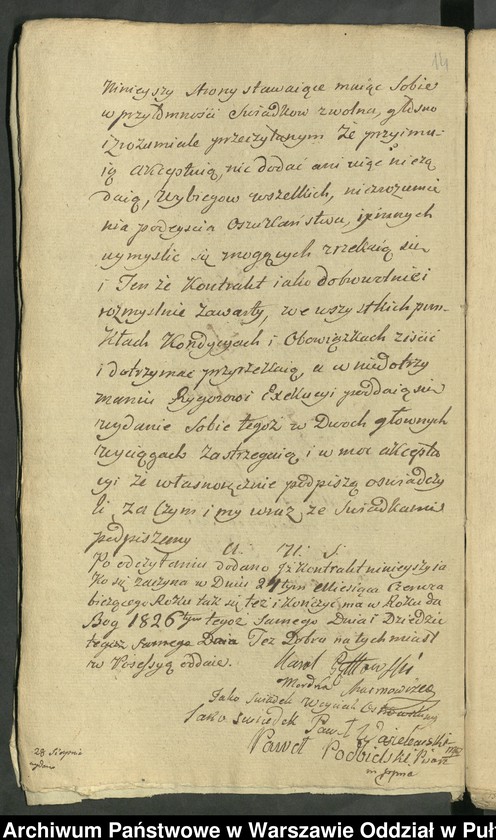 14
Ninieyszy Strony stawaiące maiąc Sobie
w przytomności Swiadkow zwolna, głosno
i zrozumiale przeczytanym Że przyimu-
ią akceptuią, nic dodać ani uiąć nieżą
daią, Wybiegow wszelkich, niezrozumie
nia podeyscia Oszukaństwa, i innych
wymyslic się mogących zrzekaią się
i Ten że Kontrakt iako dobrowolnie i
rozmyslnie zawarty, we wszystkich pun-
ktach Kondycyach i Obowiązkach ziscić
i dotrzymać przyrzekaią, a w niedotrzy
maniu Rygorowi Exekucyi poddaią się
wydanie Sobie tegoż w Dwoch głownych
wyciągach zastrzegaią, i w moc akcepta
cyi że własnoręcznie podpiszą oswiadczy
li, za czym i my wraz ze Swiadkami
podpisuiemy
Po odczytaniu dodano iż Kontrakt ninieyszy ia
ko się zaczyna w Dniu 24tym Miesiąca Czerwca
bieżącego Roku tak się też i Kończyć ma w Roku da
Bog 1826tym tegoż Samego Dnia i Dziedzic
tegoż Samego Dnia Też Dobra natychmiast
w Possessyą oddaie.
Karol
Mordka
Jako Swiadek Woyciech
Jako swiadek Paweł
Paweł Podbielski Pisarz
28 Sierpnia
wydano